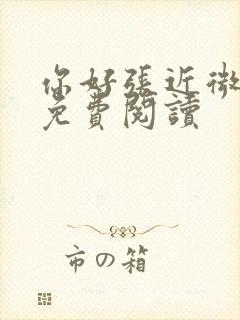 你好張近微
免費閱讀
市の箱